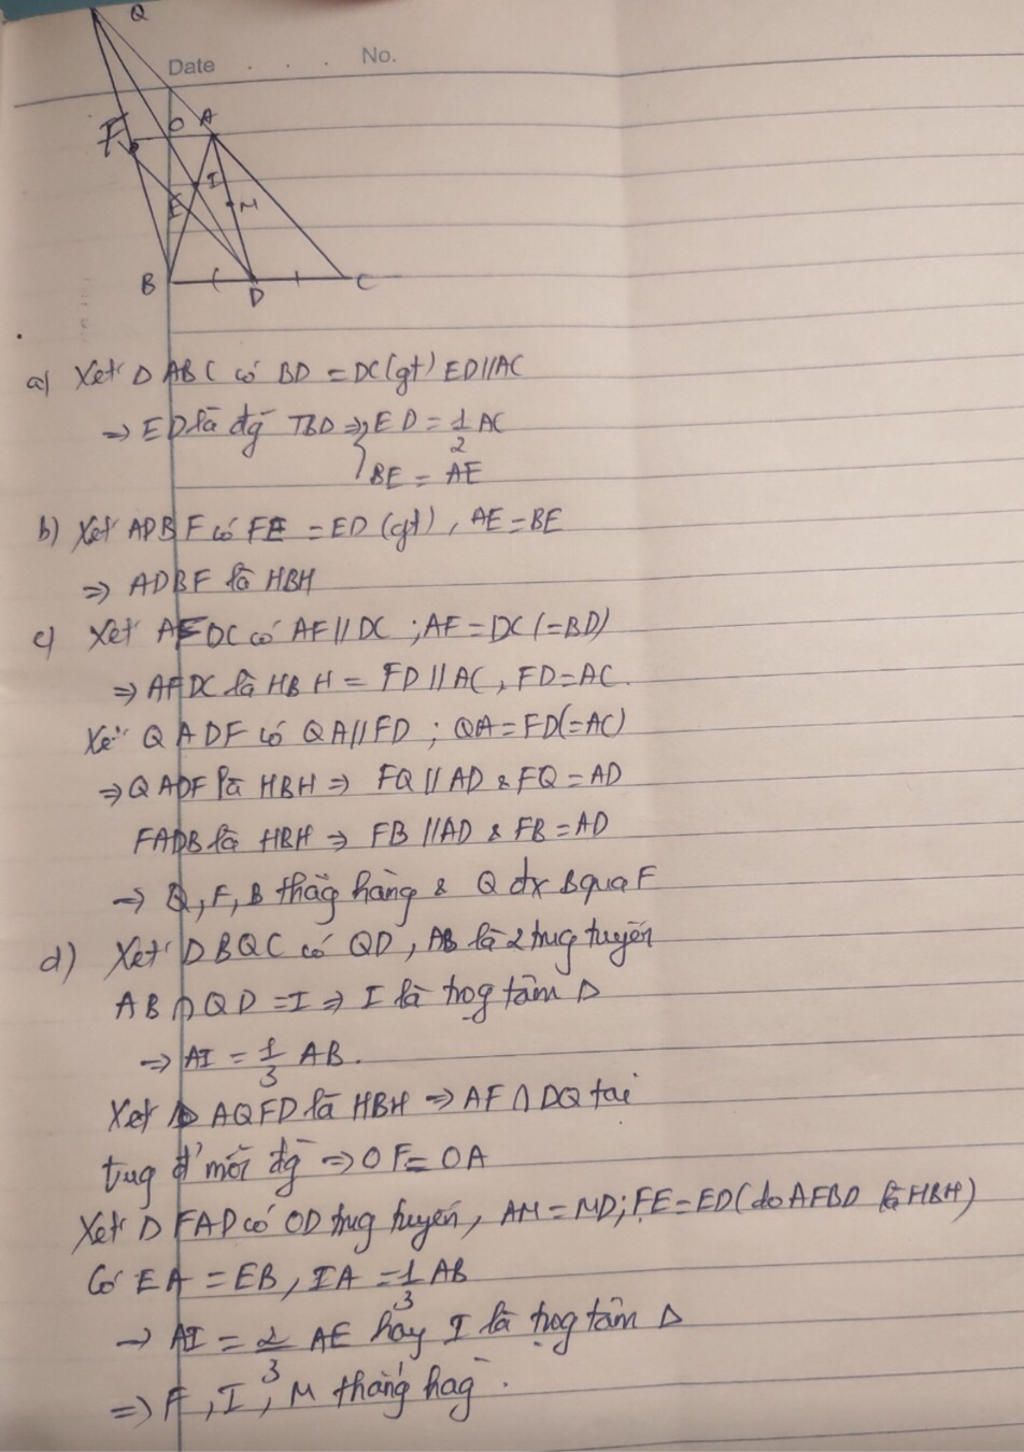 Q
Date . . . . No.
F O A
I
E M
B D C
a) Xét Δ ABC có BD = DC (gt) ED // AC
⇒ ED là đg TBD ⇒ { ED = 1/2 AC
BE = AE
b) Xét ADBF có FE = ED (gt), AE = BE
⇒ ADBF là HBH
c) Xét AFDC có AF // DC ; AF = DC (= BD)
⇒ AFDC là HBH = FD // AC, FD = AC.
Xét QADF có QA // FD ; QA = FD (= AC)
⇒ QADF là HBH ⇒ FQ // AD & FQ = AD
FADB là HBH ⇒ FB // AD & FB = AD
→ Q, F, B thẳg hàng & Q đx B qua F
d) Xét Δ BQC có QD, AB là 2 trug tuyến
AB ∩ QD = I ⇒ I là trọg tâm Δ
⇒ AI = 1/3 AB.
Xét AQFD là HBH ⇒ AF ∩ DQ tại
tug đ' mỗi đg ⇒ OF = OA
Xét Δ FAD có OD trug tuyến, AM = MD; FE = ED (do AFBD là HBH)
Có EA = EB, IA = 1/3 AB
→ AI = 2/3 AE hay I là trọg tâm Δ
⇒ F, I, M thẳng hàg.